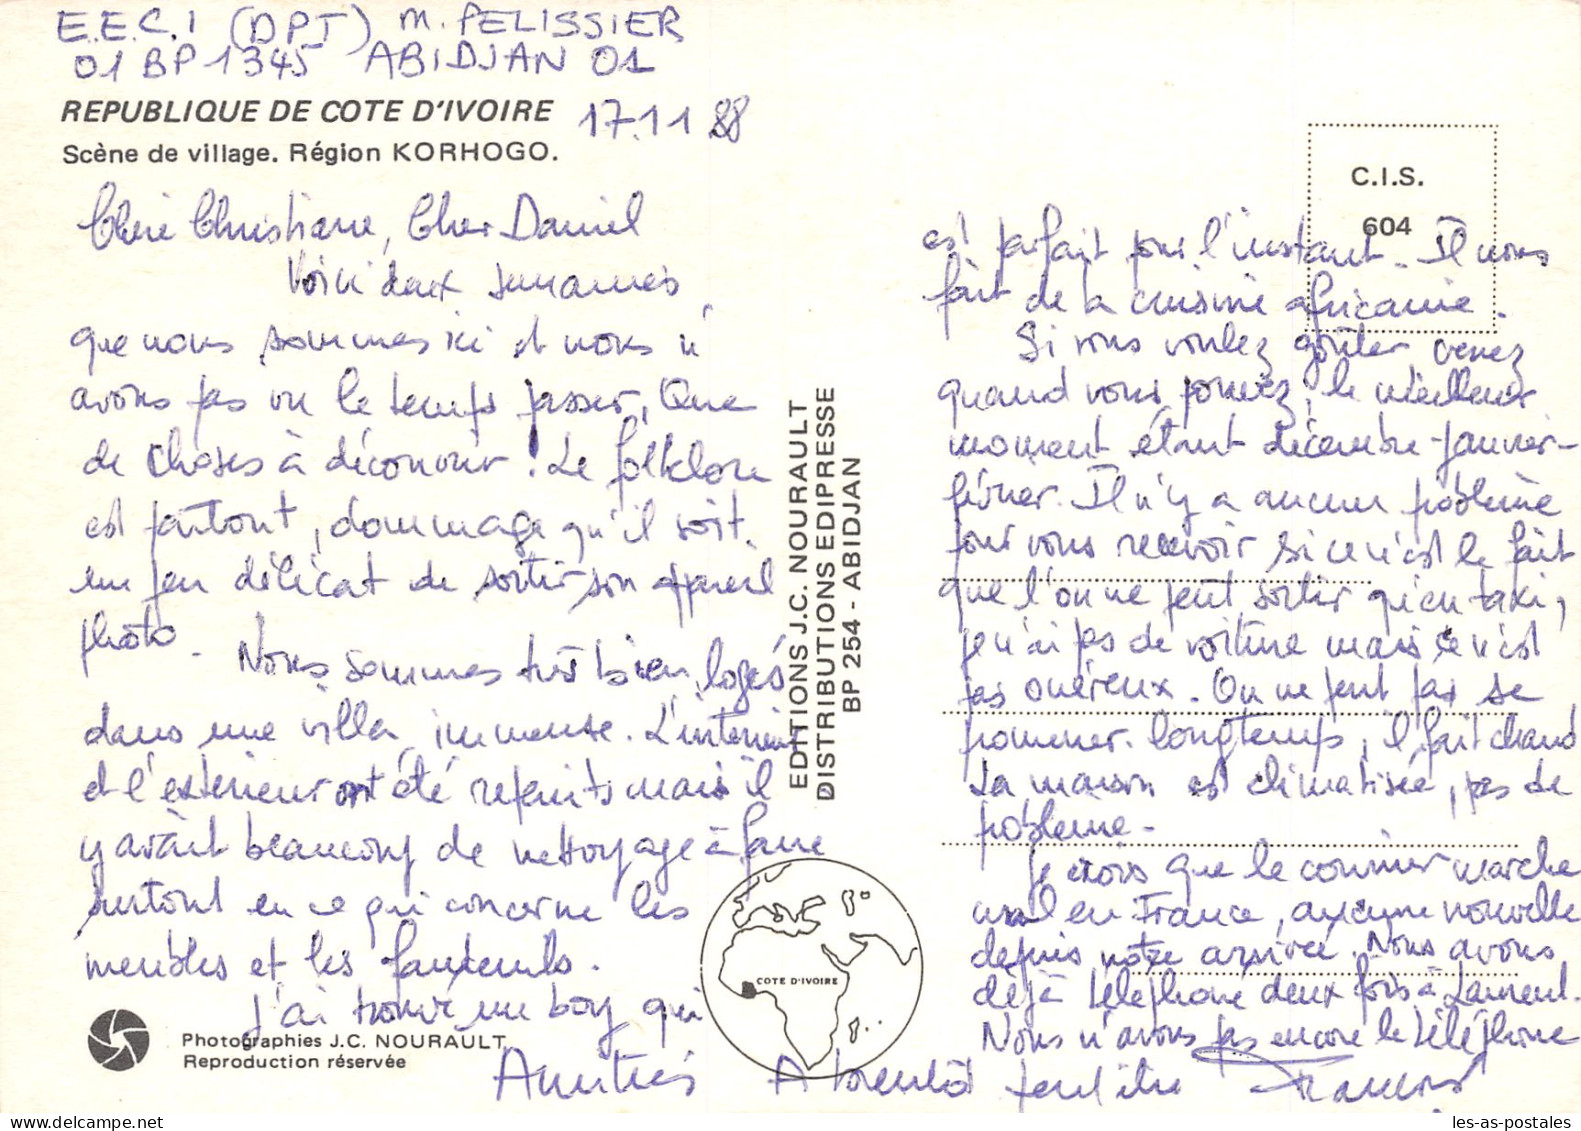 E.E.C.I (DPJ) M. PELISSIER
01 BP 1345 ABIDJAN 01
REPUBLIQUE DE COTE D'IVOIRE 17.11 88
Scène de village. Région KORHOGO.
Chère Christiane, Cher Daniel
Voici deux semaines
que nous sommes ici et nous n'
avons pas vu le temps passer, Que
de choses à découvrir! Le folklore
est partout, dommage qu'il soit
un peu délicat de sortir son appareil
photo.
Nous sommes très bien logés
dans une villa immense. L'intérieur
et l'extérieur ont été refaits mais il
y avait beaucoup de nettoyage à faire
surtout en ce qui concerne les
meubles et les fauteuils.
J'ai trouvé un boy qui
Photographies J.C. NOURAULT
Reproduction réservée
EDITIONS J.C. NOURAULT
DISTRIBUTIONS EDIPRESSE
BP 254 - ABIDJAN
COTE D'IVOIRE
C.I.S.
604
est parfait pour l'instant. Il nous
fait de la cuisine africaine.
Si vous voulez goûter venez
quand vous pouvez, le meilleur
moment étant décembre-janvier-
février. Il n'y a aucun problème
pour vous recevoir si ce n'est le fait
que l'on ne peut sortir qu'en taxi,
je n'ai pas de voiture mais ce n'est
pas onéreux. On ne peut pas se
promener longtemps, il fait chaud
La maison est climatisée, pas de
problème.
Je crois que le courrier marche
mal en France, aucune nouvelle
depuis notre arrivée. Nous avons
déjà téléphoné deux fois à Laurent.
Nous n'avons pas encore le téléphone
Amitiés A bientôt peut être François
les-as-postales